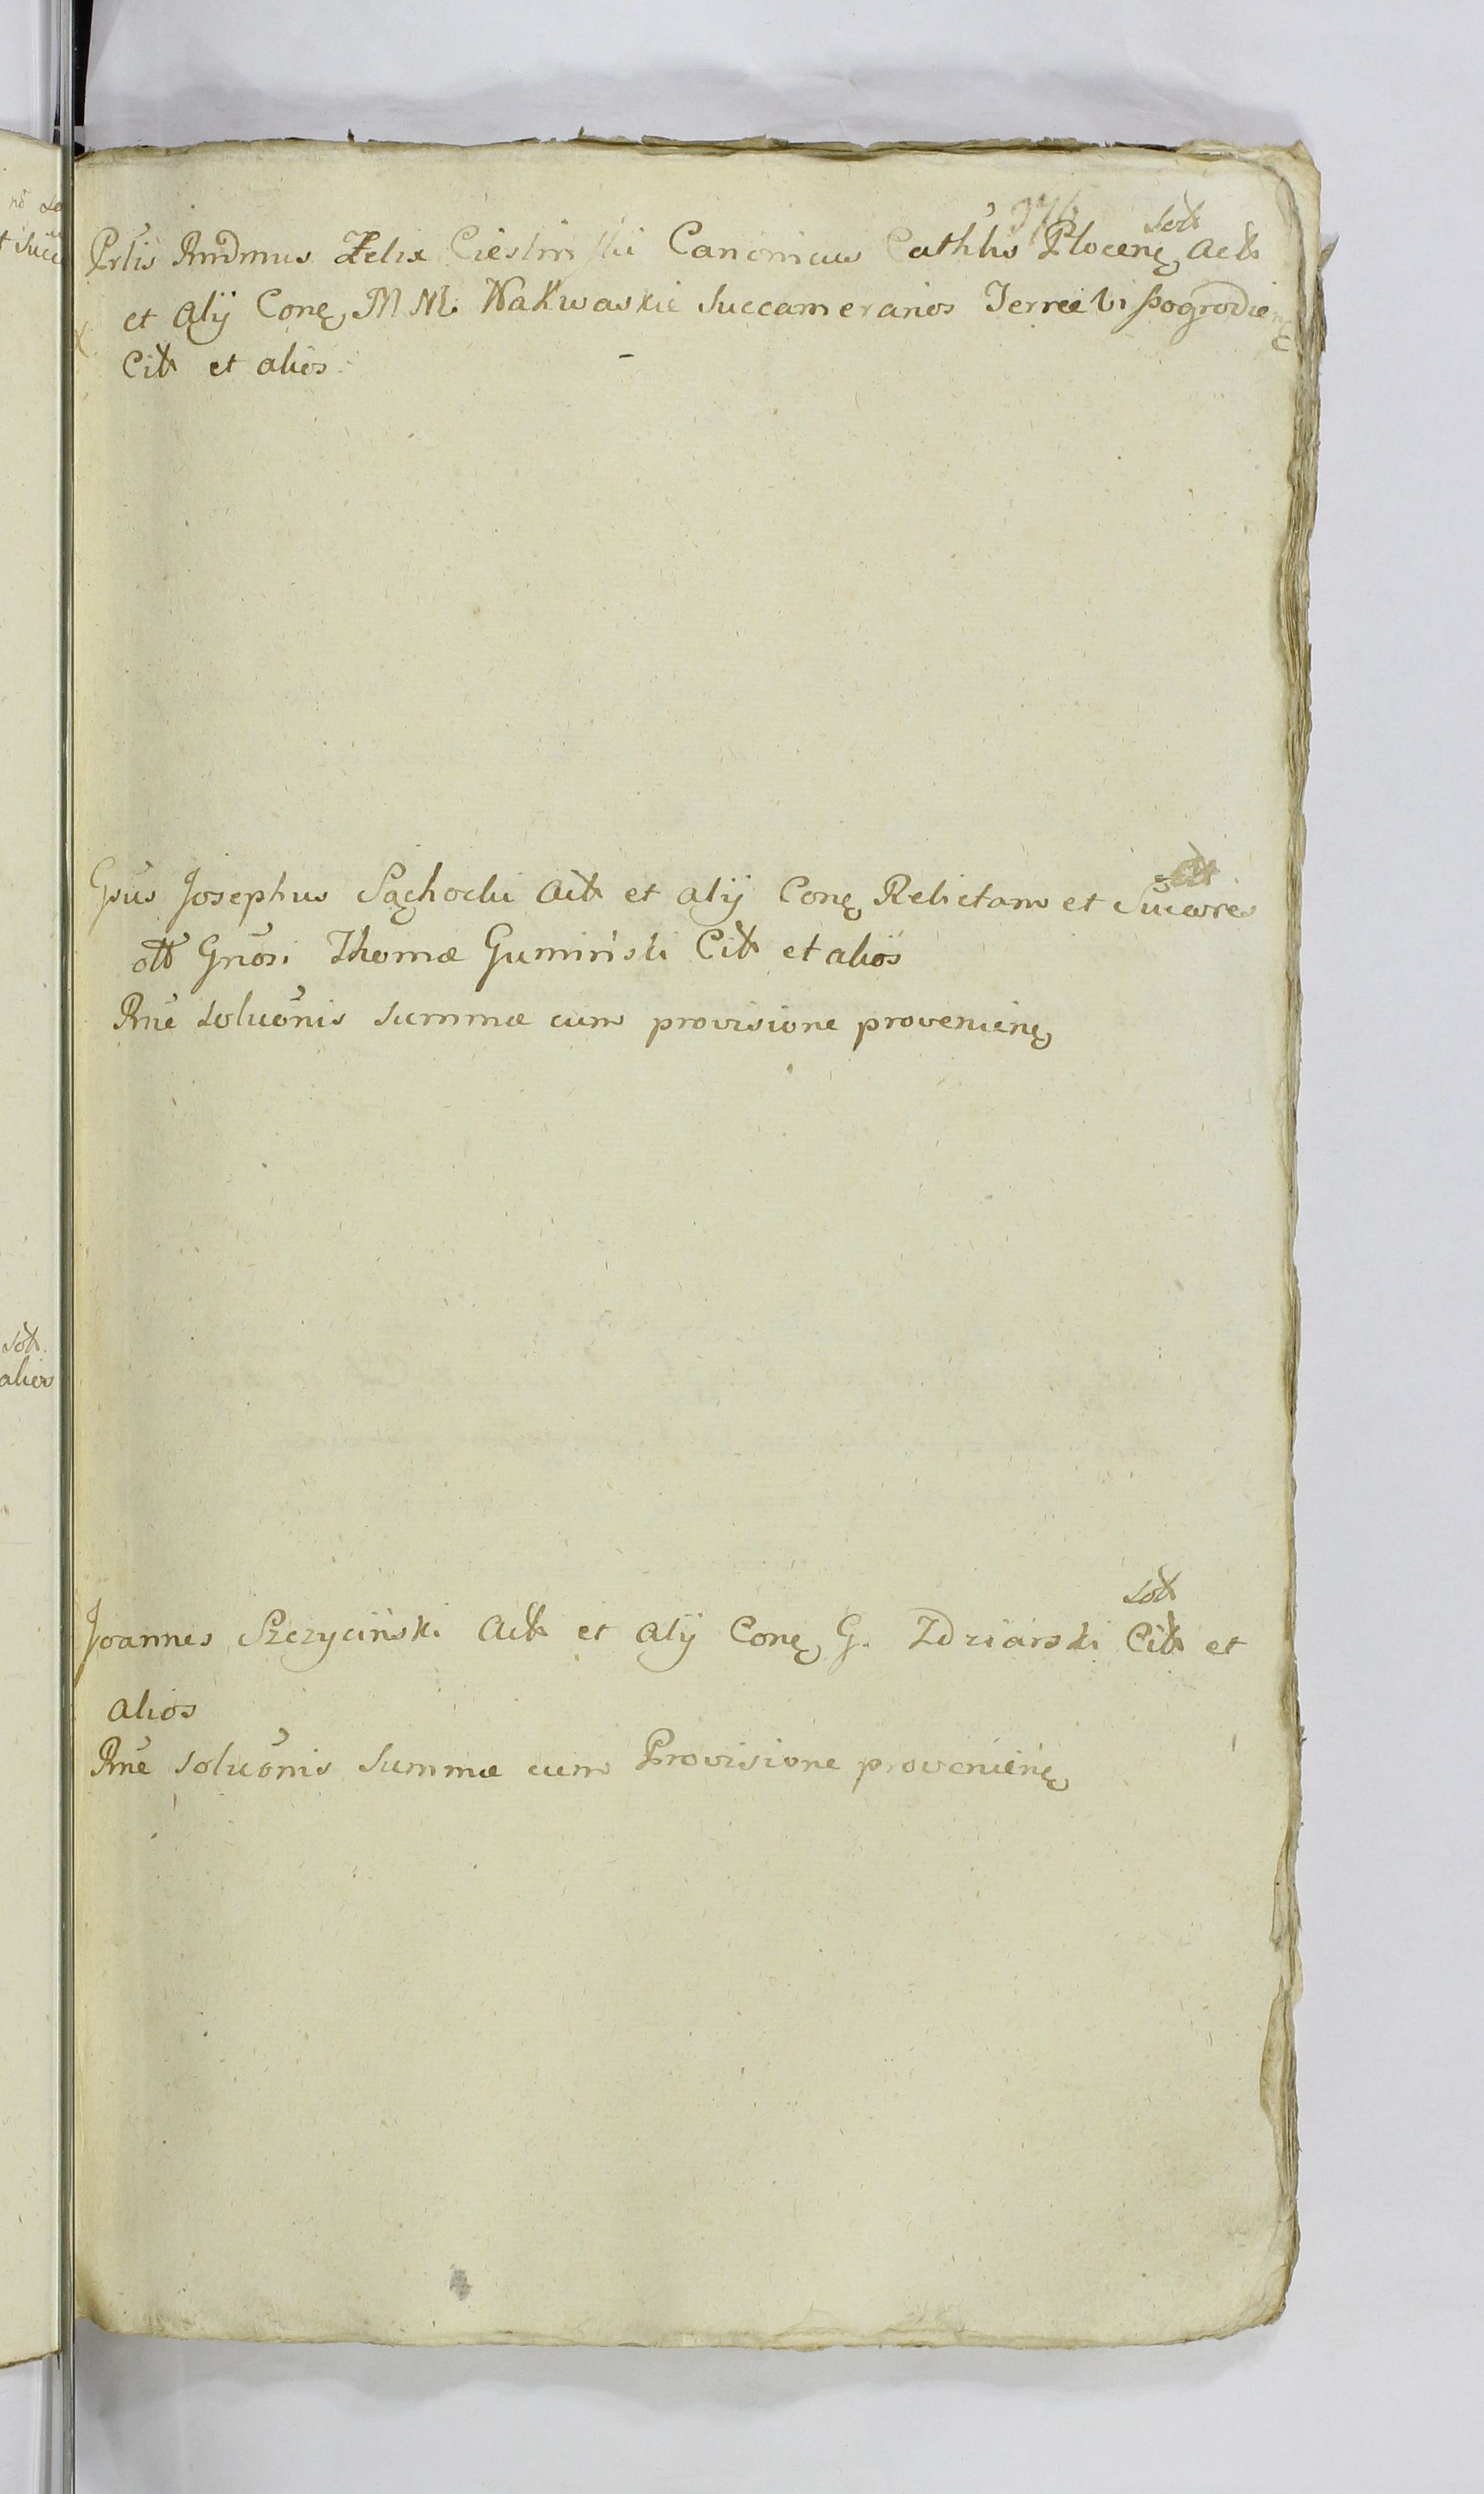 Solt
Prlis Rndmus Felix Cieslinski Canonicus Cathlis Plocenę Actt
et Alij Conę M M. Nakwaskie Succamerarios Terrae Vispogrodienę
Citt et alios.
Gsus Josephus Sąchocki Actt et alij Conę Relictam et Succores
ott Gnosi Thomæ Gumiński Citt et alios
Rne solucōnis summæ cum provisione provenienę
Solt
Joannes Szczyciński Actt et alij Conę G. Zdziarski Citt et
alios
Rne solucōnis summæ cum Provisione provenienę